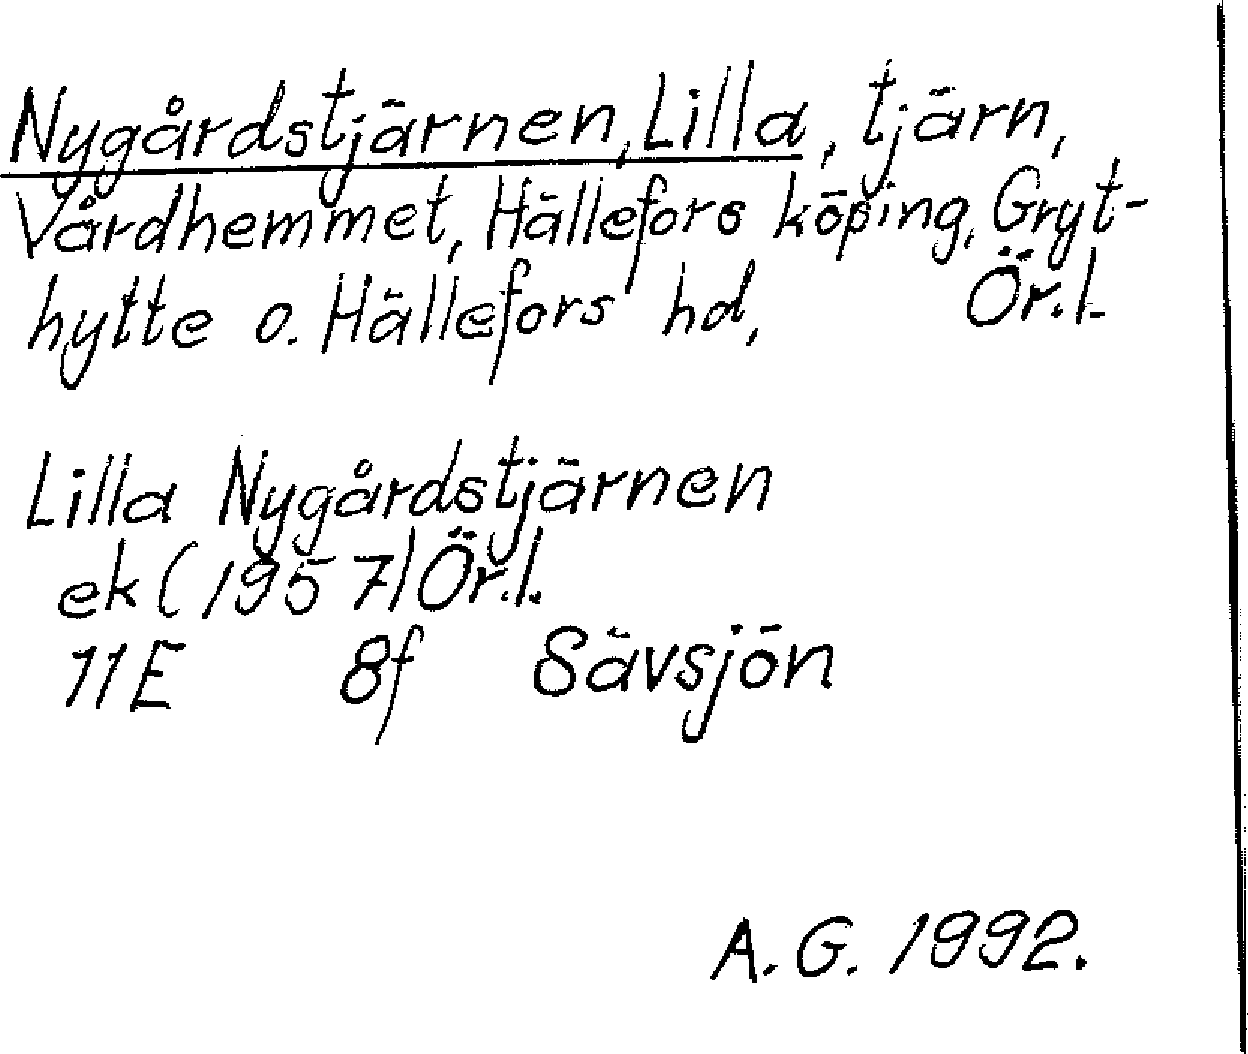 Nygårdstjärnen, Lilla, tjärn,
Vårdhemmet, Hällefors köping, Gryt-
hytte o. Hällefors hd, Ör.l.
Lilla Nygårdstjärnen
ek (1957) Ör.l.
11E 8f Sävsjön
A.G. 1992.